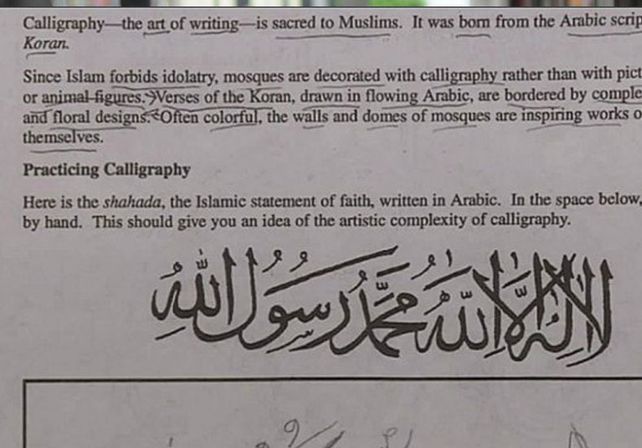 Calligraphy—the art of writing—is sacred to Muslims. It was born from the Arabic scrip
Koran.
Since Islam forbids idolatry, mosques are decorated with calligraphy rather than with pict
or animal figures. Verses of the Koran, drawn in flowing Arabic, are bordered by comple
and floral designs. Often colorful, the walls and domes of mosques are inspiring works o
themselves.
Practicing Calligraphy
Here is the shahada, the Islamic statement of faith, written in Arabic. In the space below,
by hand. This should give you an idea of the artistic complexity of calligraphy.
لا إله إلا الله محمد رسول الله